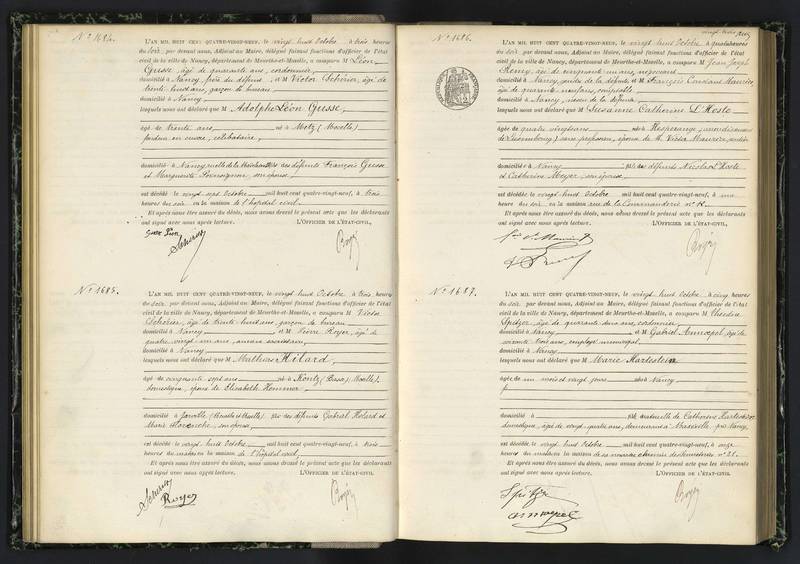 N° 1684.
L'AN MIL HUIT CENT QUATRE-VINGT-NEUF, le vingt huit Octobre à trois heures
du soir, par devant nous, Adjoint au Maire, délégué faisant fonctions d'officier de l'état
civil de la ville de Nancy, département de Meurthe-et-Moselle, a comparu M Léon
Gusse, âgé de quarante ans, cordonnier
domicilié à Nancy, frère du défunt, et M Victor Scherier, âgé de
trente huit ans, garçon de bureau
domicilié à Nancy
lesquels nous ont déclaré que M Adolphe Léon Gusse
âgé de trente ans né à Metz (Moselle)
fondeur en cuivre, célibataire,
domicilié à Nancy, fils des défunts François Gusse
et Marguerite, son épouse
est décédé le vingt sept Octobre mil huit cent quatre-vingt-neuf, à trois
heures du soir en la maison de l'hôpital civil
Et après nous être assuré du décès, nous avons dressé le présent acte que les déclarants
ont signé avec nous après lecture. L'OFFICIER DE L'ÉTAT-CIVIL,
N° 1685.
L'AN MIL HUIT CENT QUATRE-VINGT-NEUF, le vingt huit Octobre à trois heures
du soir, par devant nous, Adjoint au Maire, délégué faisant fonctions d'officier de l'état
civil de la ville de Nancy, département de Meurthe-et-Moselle, a comparu M Victor
Scherier, âgé de trente huit ans, garçon de bureau
domicilié à Nancy et M Pierre Royer, âgé de
quatre vingt un ans, ancien
domicilié à Nancy
lesquels nous ont déclaré que M Mathias Hilard
âgé de cinquante sept ans né à Kontz (Basse) (Moselle),
domestique, époux de Elisabeth Hemmer
domicilié à Jarville (Meurthe et Moselle) fils des défunts Gabriel Hilard et
Marie, son épouse
est décédé le vingt huit Octobre mil huit cent quatre-vingt-neuf, à trois
heures du matin en la maison de l'hôpital civil
Et après nous être assuré du décès, nous avons dressé le présent acte que les déclarants
ont signé avec nous après lecture. L'OFFICIER DE L'ÉTAT-CIVIL,
Scherier
Royer
N° 1686.
L'AN MIL HUIT CENT QUATRE-VINGT-NEUF, le vingt huit Octobre à quatre heures
du soir, par devant nous, Adjoint au Maire, délégué faisant fonctions d'officier de l'état
civil de la ville de Nancy, département de Meurthe-et-Moselle, a comparu M Jean Joseph
Remy, âgé de cinquante un ans, négociant
domicilié à Nancy, de la défunte et M François Constant Maurice,
âgé de quarante neuf ans, comptable
domicilié à Nancy, neveu de la défunte
lesquels nous ont déclaré que M Susanne Catherine L'Hoste
âgée de quatre vingts ans née à Hesperange,
de Luxembourg) sans profession, épouse de M. Victor Maurice, rentier
domiciliée à Nancy fille des défunts Nicolas L'Hoste
et Catherine Meyer, son épouse
est décédée le vingt huit Octobre mil huit cent quatre-vingt-neuf, à une
heure du soir en la maison rue de la Commanderie n°
Et après nous être assuré du décès, nous avons dressé le présent acte que les déclarants
ont signé avec nous après lecture. L'OFFICIER DE L'ÉTAT-CIVIL,
N° 1687.
L'AN MIL HUIT CENT QUATRE-VINGT-NEUF, le vingt huit Octobre, à cinq heures
du soir, par devant nous, Adjoint au Maire, délégué faisant fonctions d'officier de l'état
civil de la ville de Nancy, département de Meurthe-et-Moselle, a comparu M Théodore
Spitzer, âgé de quarante deux ans, cordonnier
domicilié à Nancy et M Gabriel Annezel, âgé de
soixante trois ans, employé municipal
domicilié à Nancy
lesquels nous ont déclaré que M Marie Hartestein
âgée de un mois et vingt jours née à Nancy
domiciliée à fille naturelle de Catherine Hartestein
domestique, âgée de vingt quatre ans, demeurant à Maxéville près Nancy,
est décédée le vingt huit Octobre mil huit cent quatre-vingt-neuf, à onze
heures du matin en la maison de sa nourrice n° 21.
Et après nous être assuré du décès, nous avons dressé le présent acte que les déclarants
ont signé avec nous après lecture. L'OFFICIER DE L'ÉTAT-CIVIL,
Spitzer